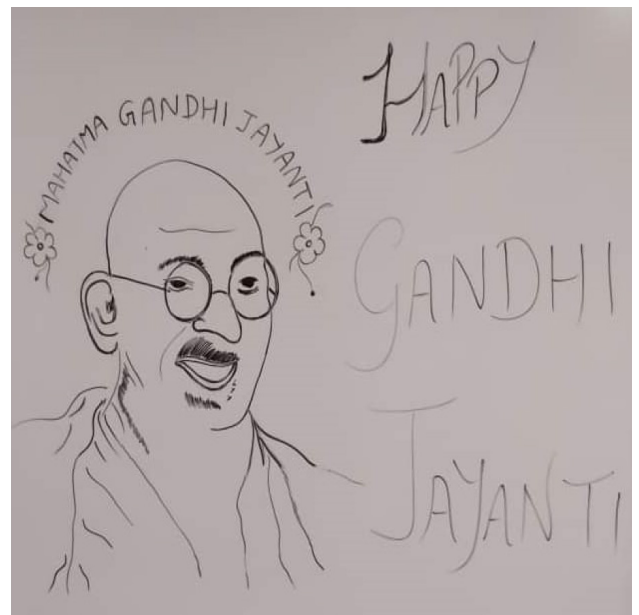 MAHATMA GANDHI JAYANTI
HAPPY
GANDHI
JAYANTI